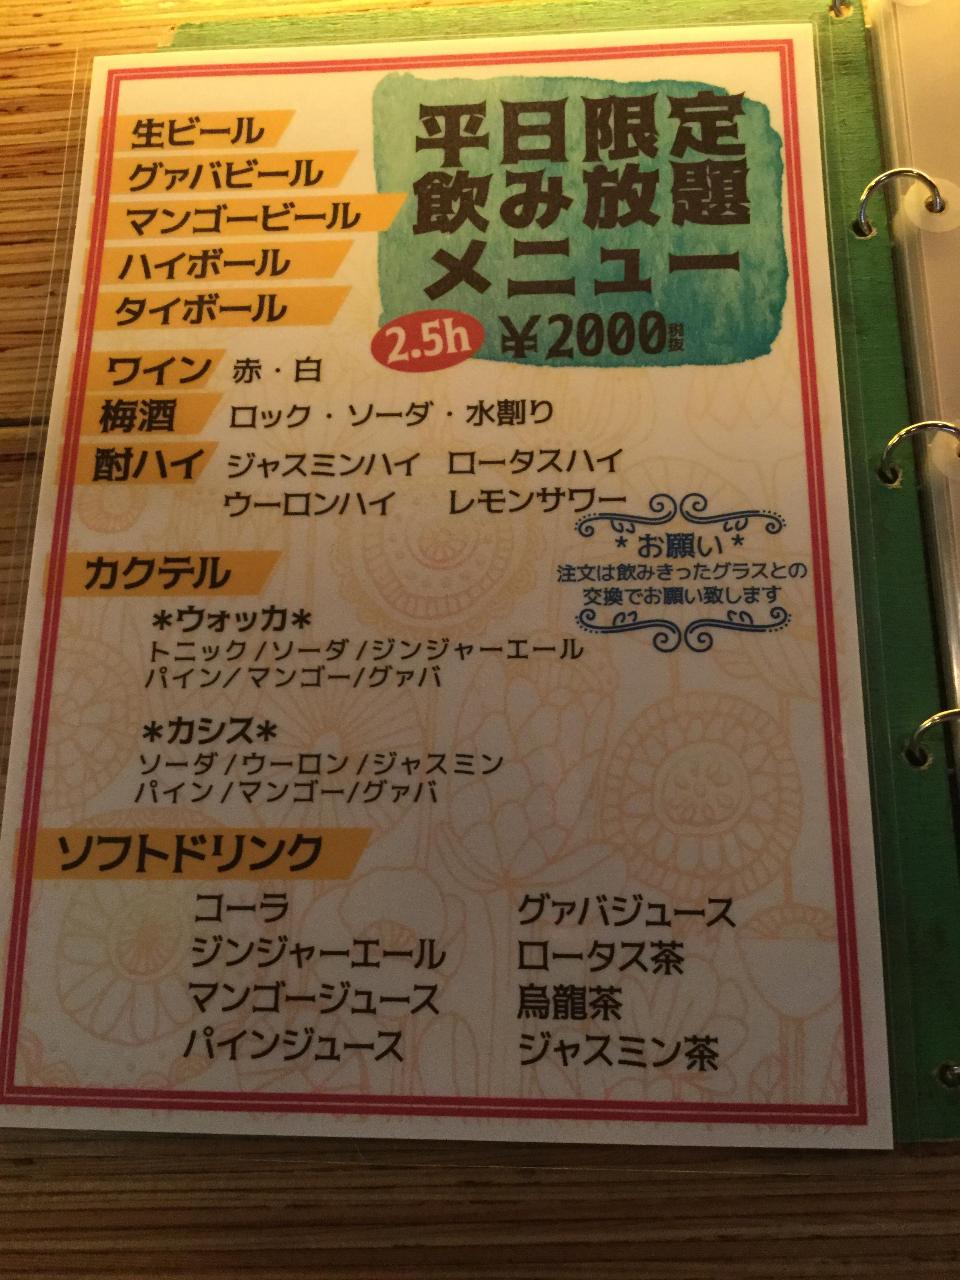 平日限定
飲み放題
メニュー
2.5h ¥2000税抜
生ビール
グァバビール
マンゴービール
ハイボール
タイボール
ワイン 赤・白
梅酒 ロック・ソーダ・水割り
酎ハイ ジャスミンハイ ロータスハイ
ウーロンハイ レモンサワー
*お願い*
注文は飲みきったグラスとの
交換でお願い致します
カクテル
*ウォッカ*
トニック/ソーダ/ジンジャーエール
パイン/マンゴー/グァバ
*カシス*
ソーダ/ウーロン/ジャスミン
パイン/マンゴー/グァバ
ソフトドリンク
コーラ
ジンジャーエール
マンゴージュース
パインジュース
グァバジュース
ロータス茶
烏龍茶
ジャスミン茶